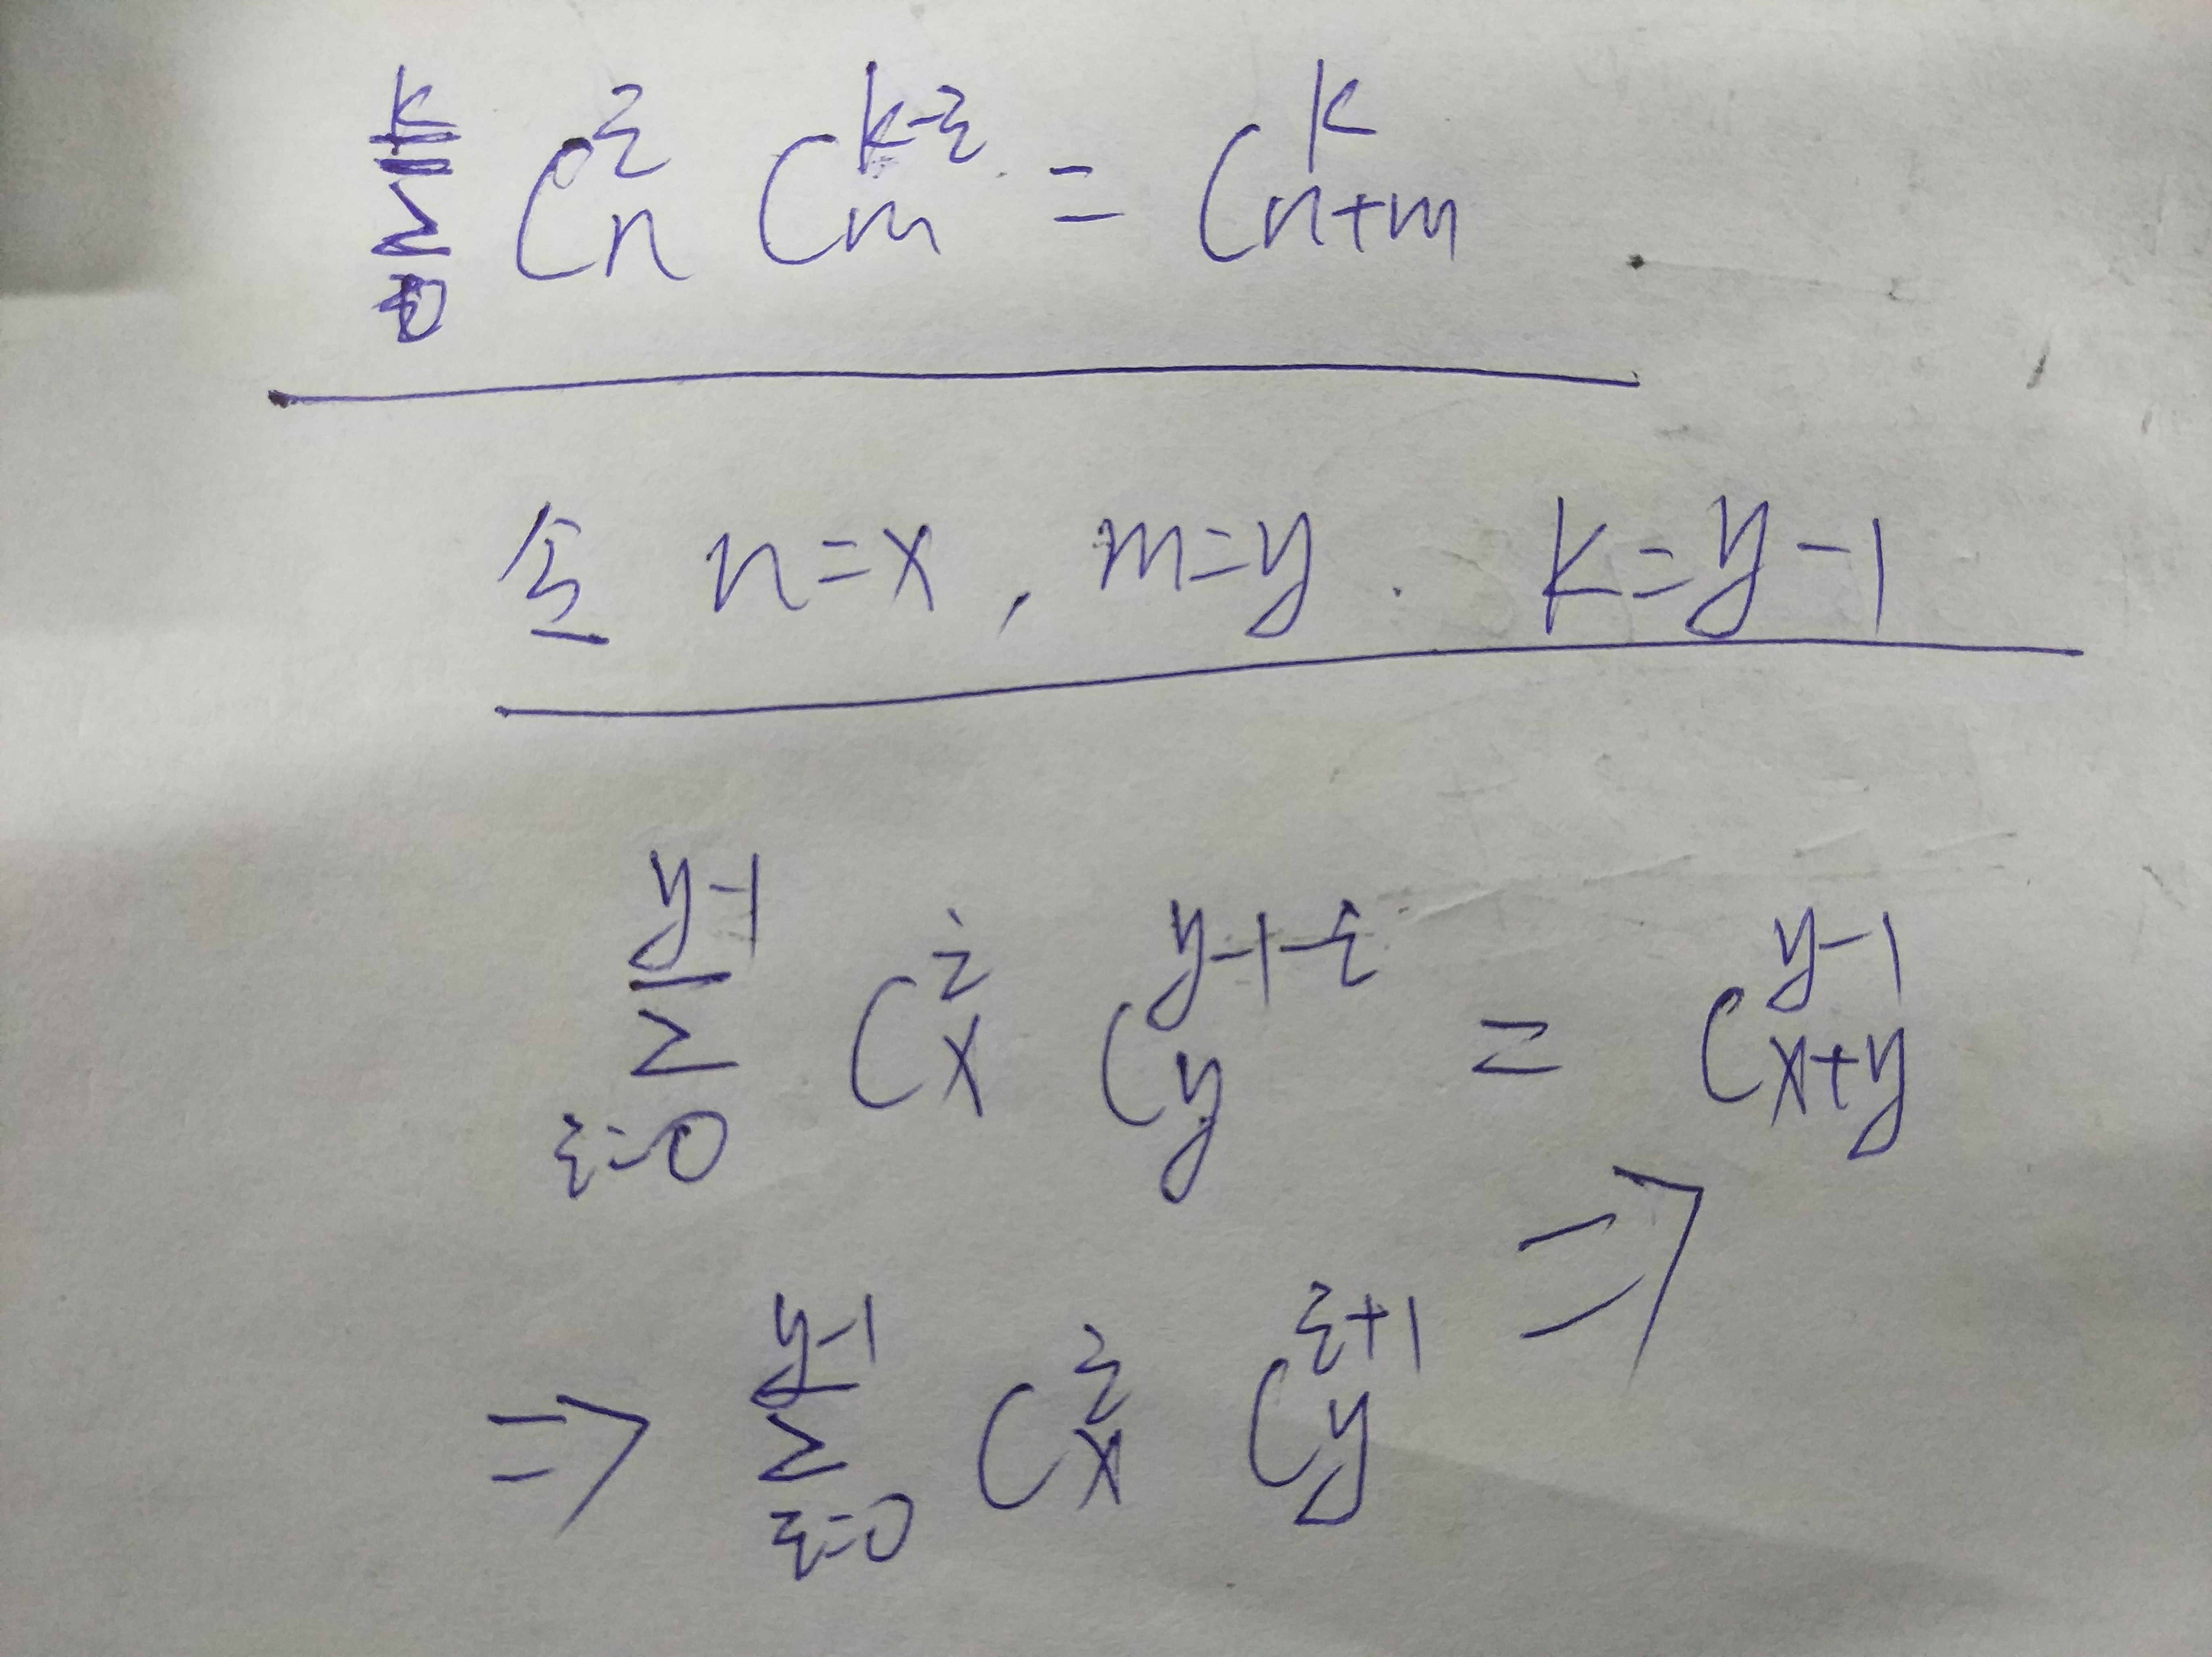 $\sum_{0}^{k} C_n^i C_m^{k-i} = C_{n+m}^k$
令 n=x, m=y. k=y-1
$\sum_{i=0}^{y-1} C_x^i C_y^{y-1-i} = C_{x+y}^{y-1}$ ⇒
⇒ $\sum_{i=0}^{y-1} C_x^i C_y^{i+1}$